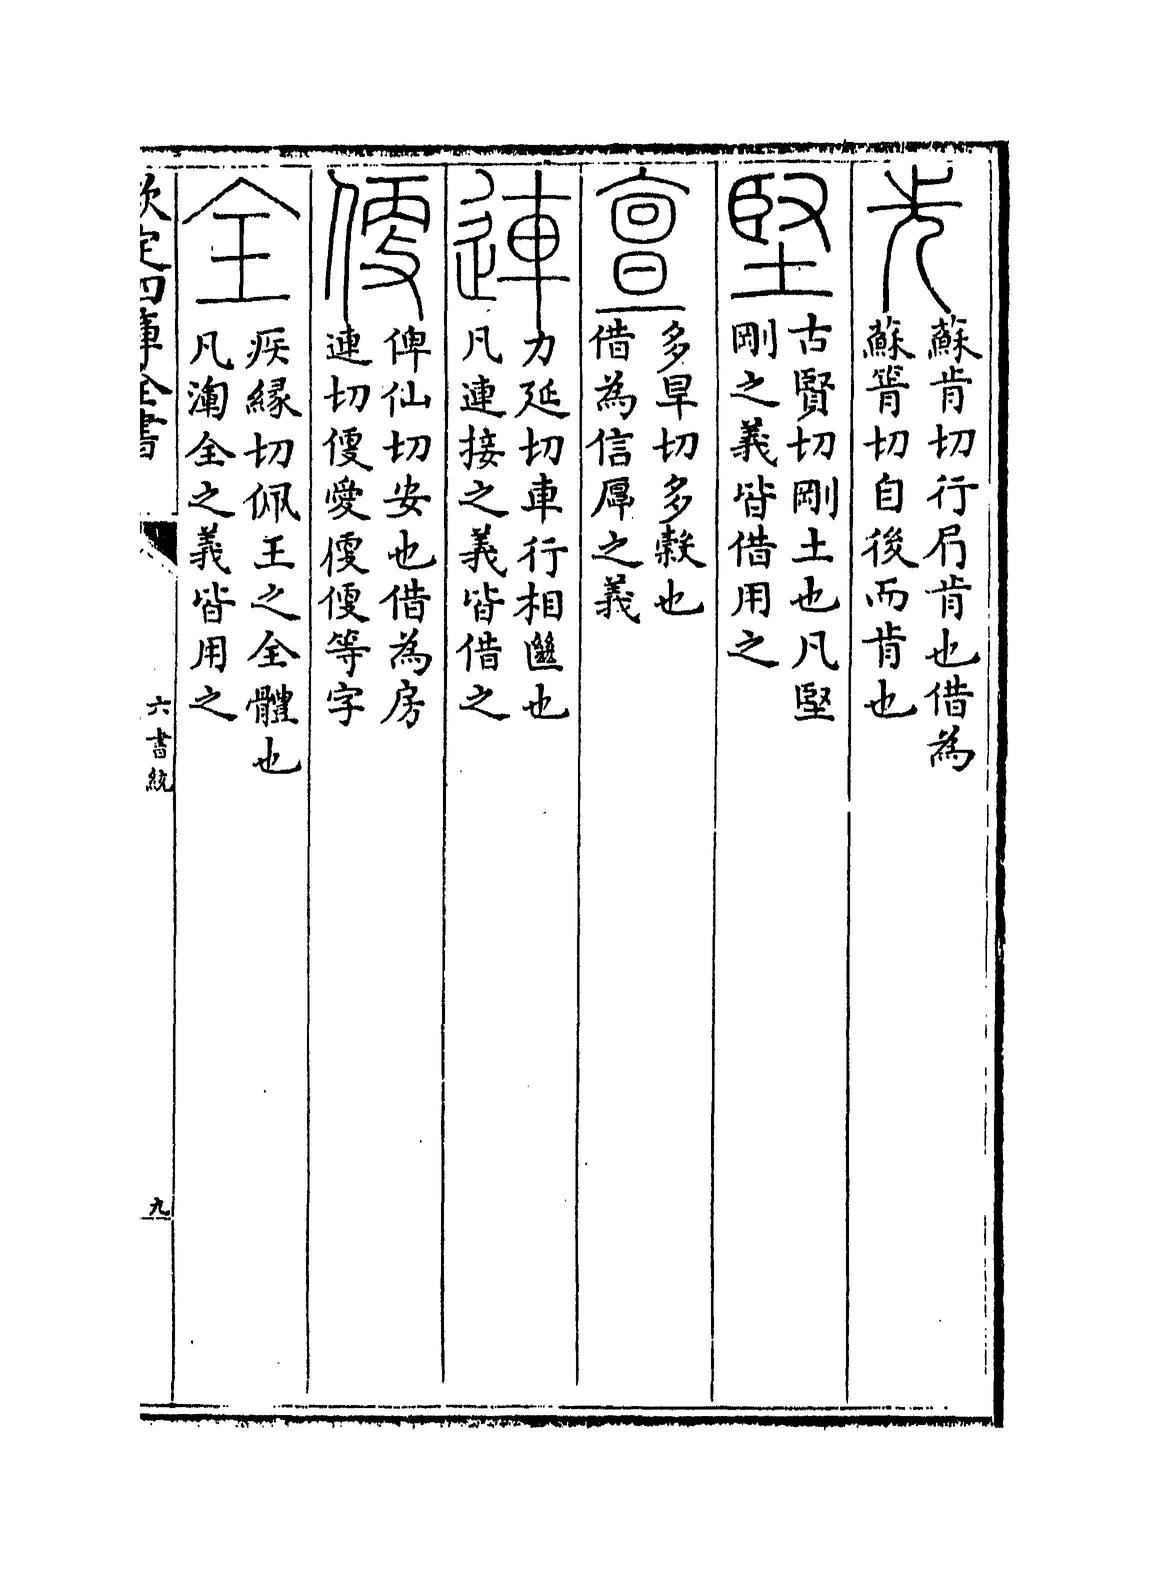 先
蘇肯切行㞐肯也借為
蘇箭切自後而肯也
堅
古賢切剛土也凡堅
剛之義皆借用之
亶
多旱切多穀也
借為信厚之義
連
力延切車行相也
凡連接之義皆借之
便
俾仙切安也借為房
連切便愛便便等字
全
疾縁切佩王之全體也
凡渾全之義皆用之
欽定四庫全書
六書統
九